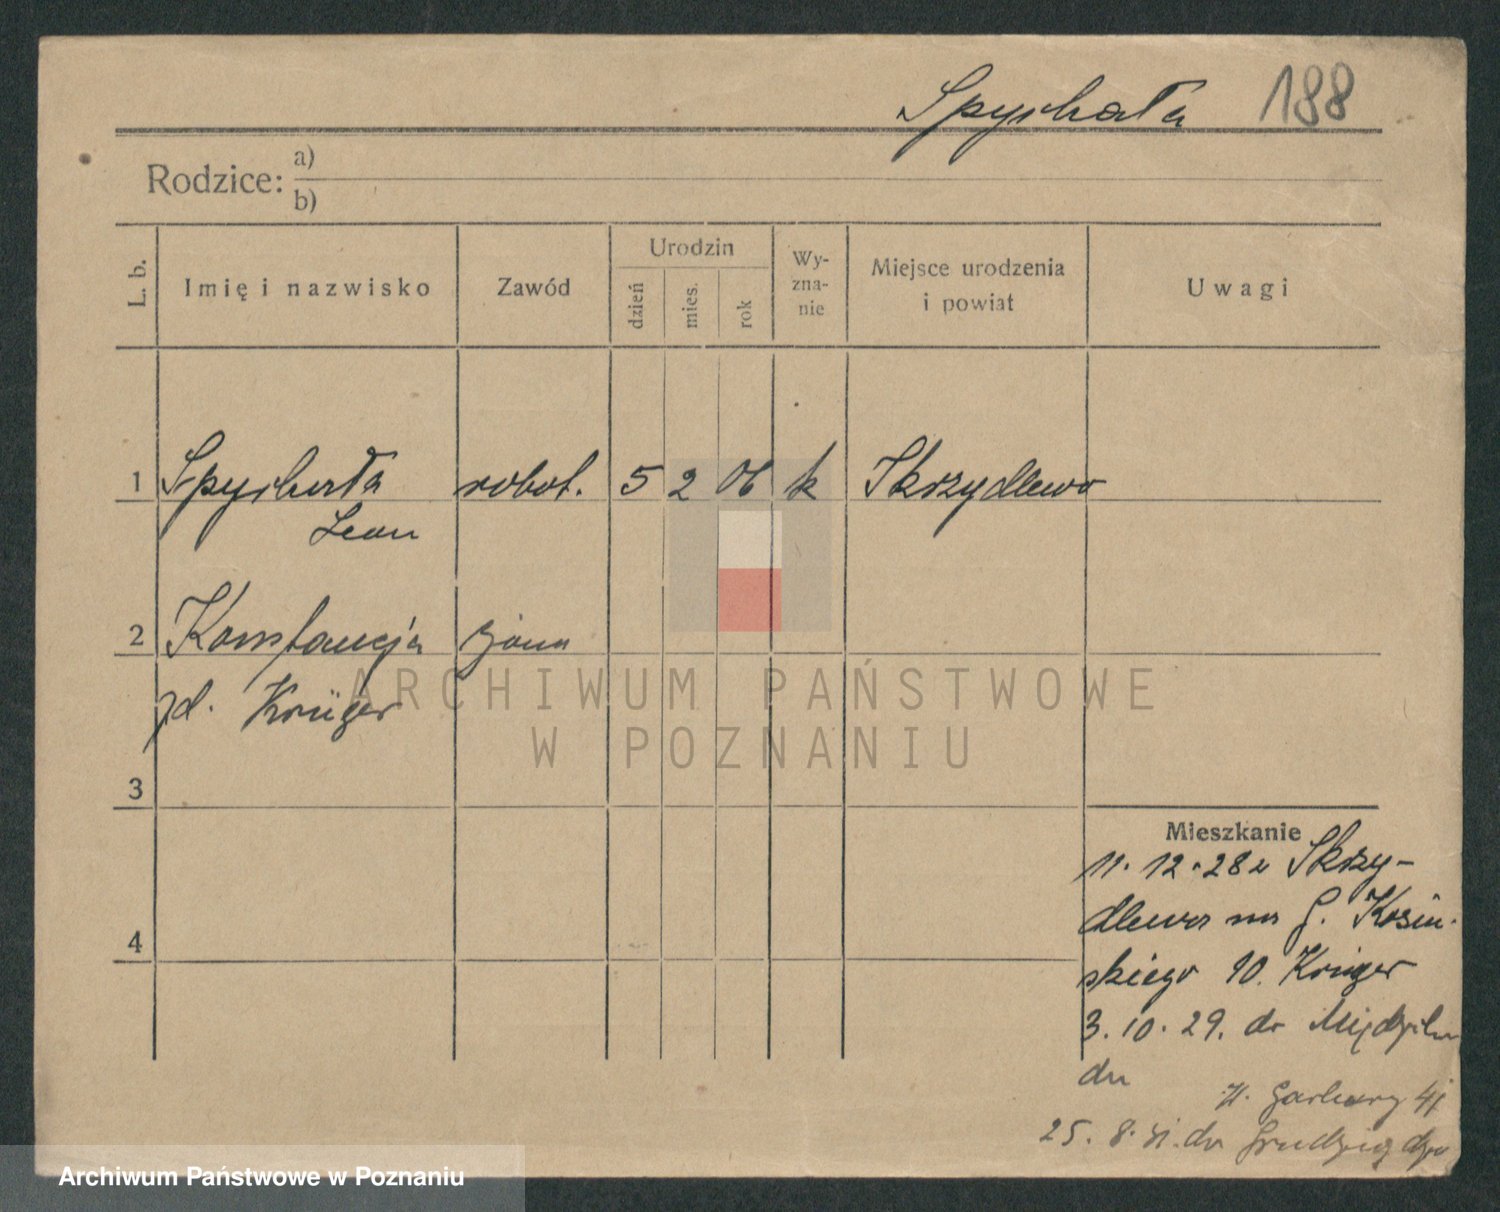 Spychała 188
Rodzice: a)
b)
L. b.
Imię i nazwisko
Zawód
Urodzin
dzień
mies.
rok
Wy-
zna-
nie
Miejsce urodzenia
i powiat
Uwagi
1 Spychała robot. 5 2 06 k Skrzydlewo
Leon
2 Konstancja żona
zd. Krüger
3
4
Mieszkanie
11.12.28 z Skrzy-
dlewa na G. Kosiń-
skiego 10. Krüger
3.10.29. do Międzycho
du
Garbary 41
25. 8. 31. do Grudziądza
ARCHIWUM PAŃSTWOWE
W POZNANIU
Archiwum Państwowe w Poznaniu